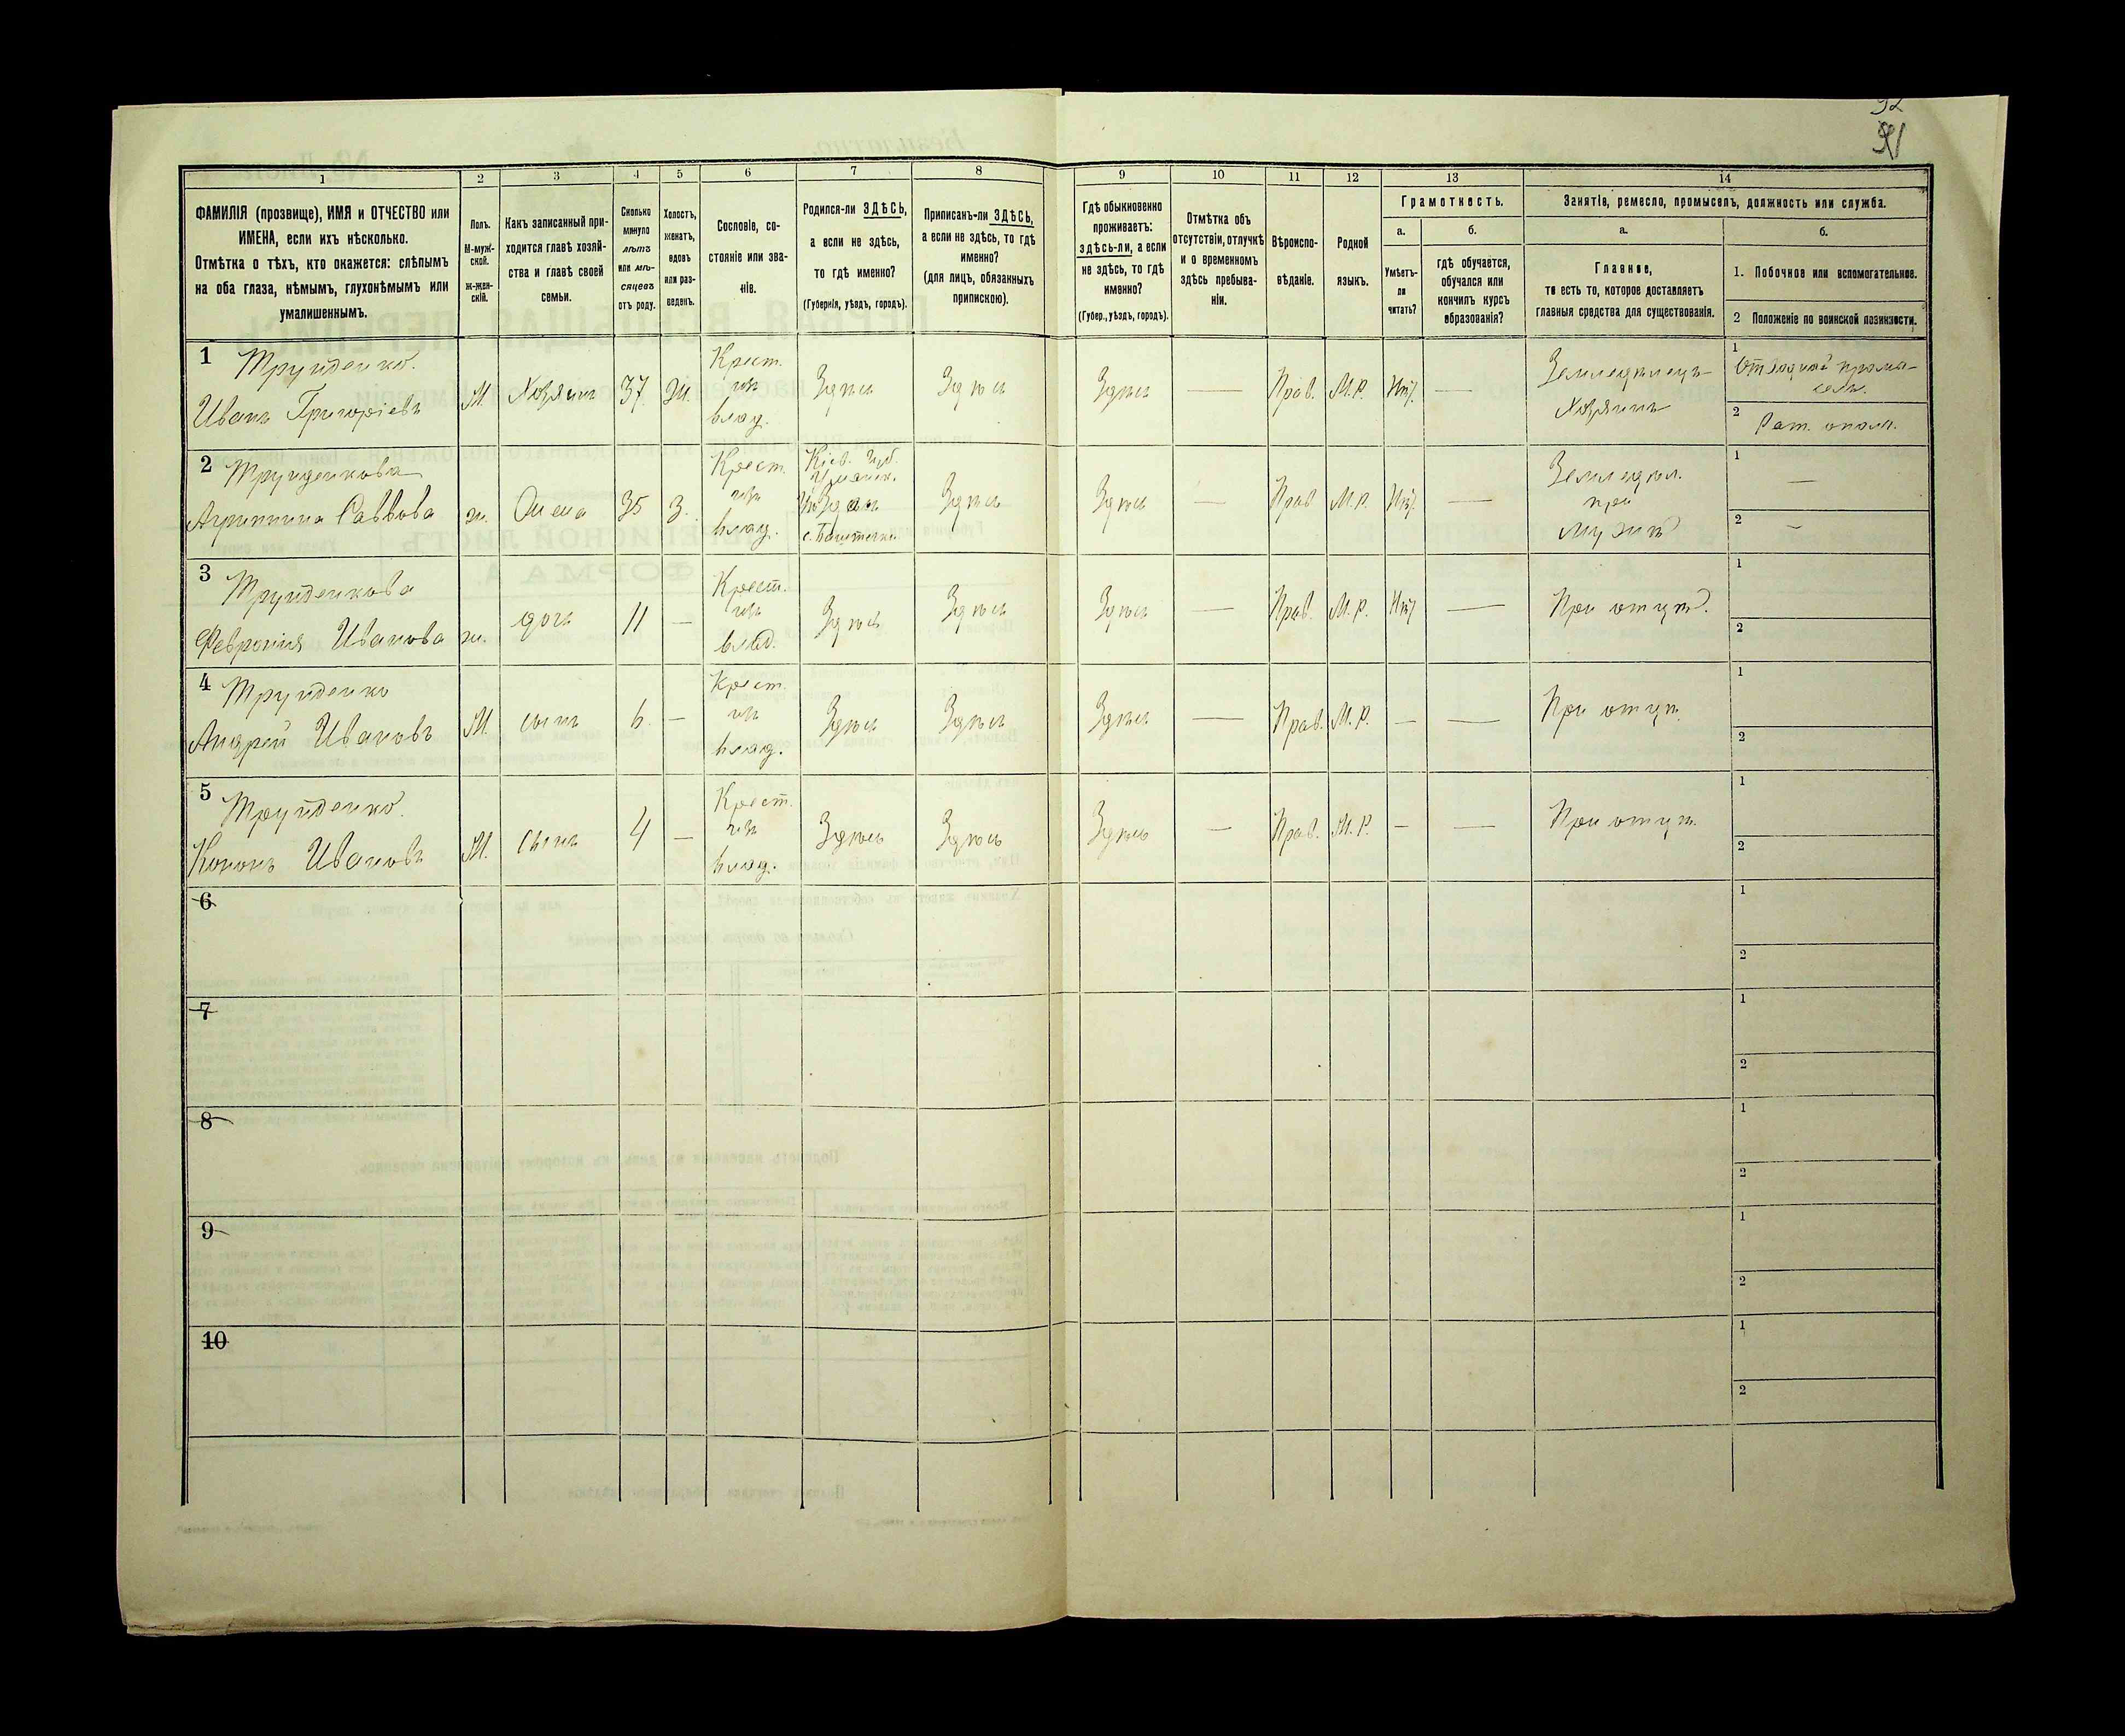 91
1
2
3
4
5
6
7
8
9
10
11
12
13
14
ФАМИЛІЯ (прозвище), ИМЯ и ОТЧЕСТВО или
ИМЕНА, если ихъ нѣсколько.
Отмѣтка о тѣхъ, кто окажется: слѣпымъ
на оба глаза, нѣмымъ, глухонѣмымъ или
умалишеннымъ.
Полъ.
М-муж-
ской.
Ж-жен-
скій.
Какъ записанный при-
ходится главѣ хозяй-
ства и главѣ своей
семьи.
Сколько
минуло
лѣтъ
или мѣ-
сяцевъ
отъ роду.
Холостъ,
женатъ,
вдовъ
или раз-
веденъ.
Сословіе, со-
стояніе или зва-
ніе.
Родился-ли ЗДѢСЬ,
а если не здѣсь,
то гдѣ именно?
(Губернія, уѣздъ, городъ).
Приписанъ-ли ЗДѢСЬ,
а если не здѣсь, то гдѣ
именно?
(для лицъ, обязанныхъ
припискою).
Гдѣ обыкновенно
проживаетъ:
здѣсь-ли, а если
не здѣсь, то гдѣ
именно?
(Губер., уѣздъ, городъ).
Отмѣтка объ
отсутствіи, отлучкѣ
и о временномъ
здѣсь пребыва-
ніи.
Вѣроиспо-
вѣданіе.
Родной
языкъ.
Грамотность.
а.
Умѣетъ-
ли
читать?
б.
гдѣ обучается,
обучался или
кончилъ курсъ
образованія?
Занятіе, ремесло, промыселъ, должность или служба.
а.
Главное,
то есть то, которое доставляетъ
главныя средства для существованія.
б.
1. Побочное или вспомогательное.
2 Положеніе по воинской повинности.
1 Труйденко.
Иванъ Григоріевъ
М.
Хозяинъ
37
Ж.
Крест.
изъ
влад.
Здѣсь
Здѣсь
Здѣсь
—
Прав.
М.р.
Нѣт.
—
Земледѣлецъ
Хозяинъ
1
Отхожій промы-
селъ.
2
Рат. опол.
2 Труйденкова
Агрипина Саввова
ж.
Жена
35
З.
Крест.
изъ
влад.
Кіев. губ.
Здѣсь
Здѣсь
—
Прав
М.р.
Нѣт.
—
Земледѣл.
при
мужѣ
1
—
2
—
3 Труйденкова
Февронія Иванова
ж.
дочь
11
—
Крест.
изъ
влад.
Здѣсь
Здѣсь
Здѣсь
—
Прав.
М.р.
Нѣт
—
При отцѣ.
1
2
4 Труйденко
Андрей Ивановъ
М.
сынъ
6.
—
Крест.
изъ
влад.
Здѣсь
Здѣсь
Здѣсь
—
Прав.
М.р.
—
—
При отцѣ
1
2
5 Труйденко.
Кононъ Ивановъ
М.
сынъ
4
—
Крест.
изъ
влад.
Здѣсь
Здѣсь
Здѣсь
—
Прав.
М.р.
—
—
При отцѣ.
1
2
6
1
2
7
1
2
8
1
2
9
1
2
10
1
2